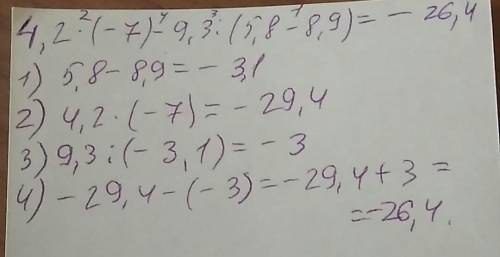 4,2 ·² (-7) -⁴ 9,3 :³ (5,8 -¹ 8,9) = - 26,4
1) 5,8 - 8,9 = - 3,1
2) 4,2 · (-7) = - 29,4
3) 9,3 : (- 3,1) = - 3
4) - 29,4 - (- 3) = - 29,4 + 3 =
= - 26,4.